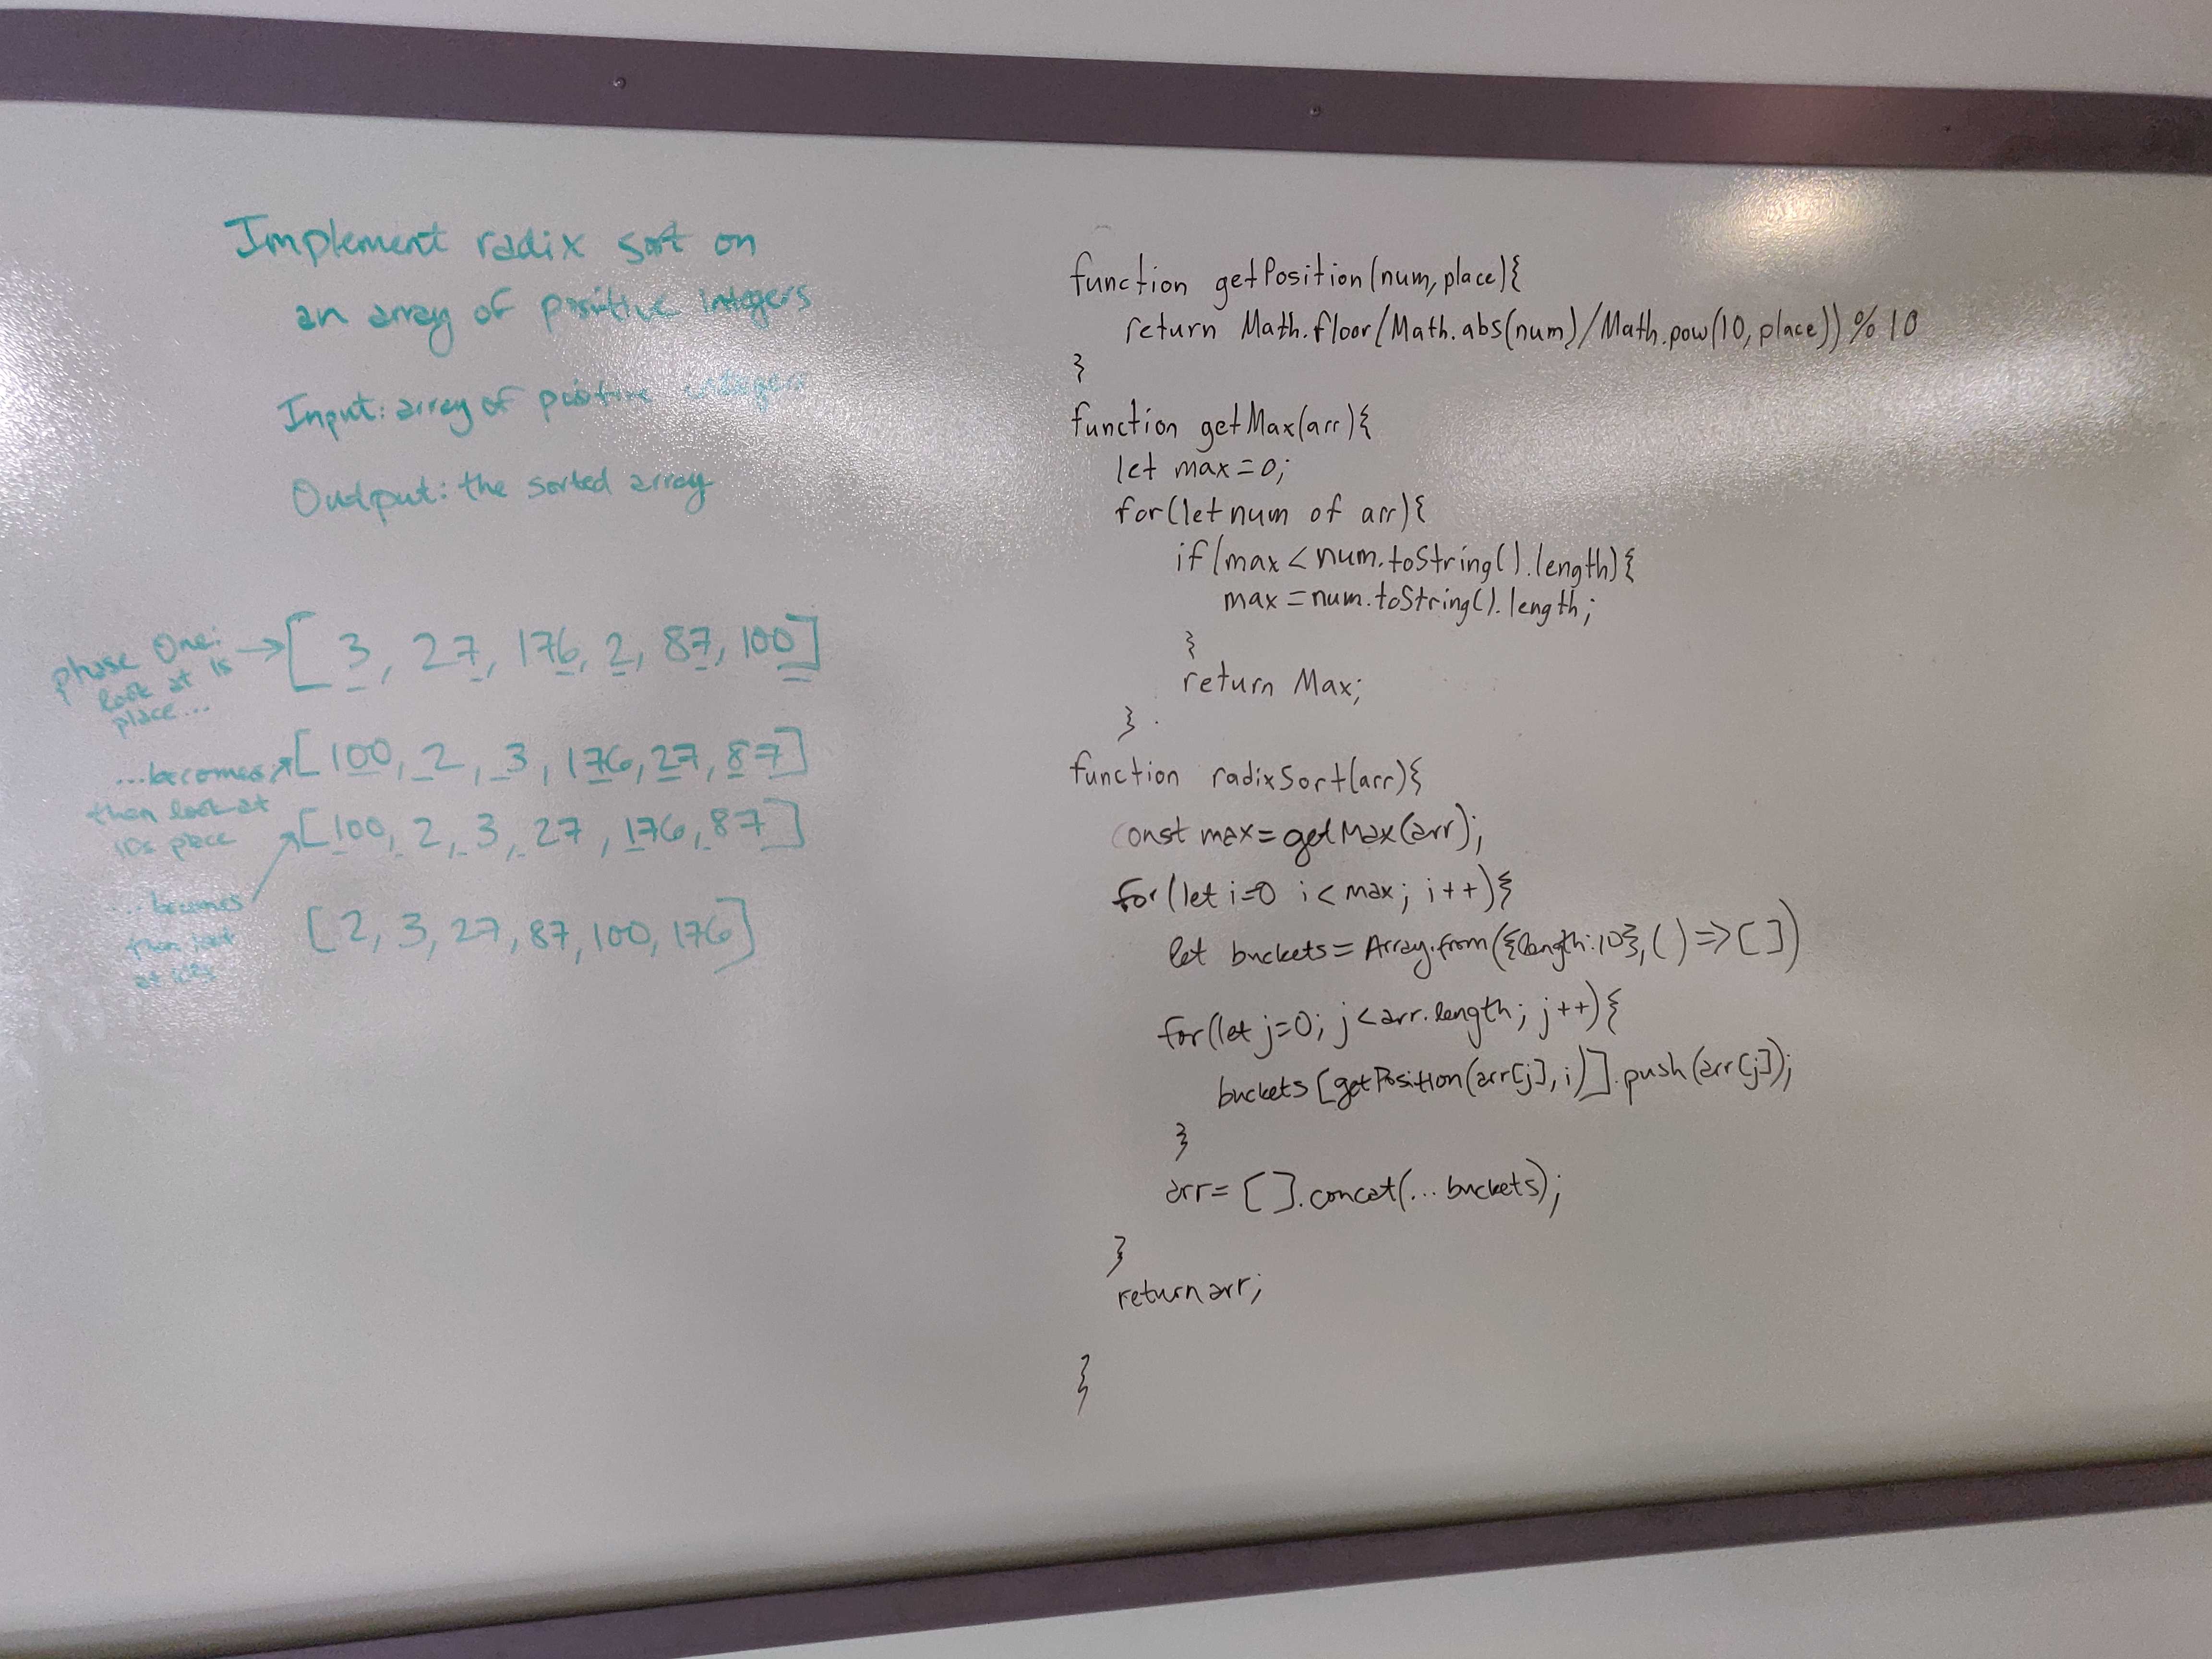 Implement radix sort on
an array of positive integers
Input: array of positive integers
Output: the sorted array
phase One:
look at 1s
place...
[ 3, 27, 176, 2, 87, 100]
...becomes
[100, 2, 3, 176, 27, 87]
then look at
10s place
[100, 2, 3, 27, 176, 87]
... becomes
then look
at 100s
[2, 3, 27, 87, 100, 176]
function getPosition(num, place){
return Math.floor(Math.abs(num)/Math.pow(10, place)) % 10
}
function getMax(arr){
let max = 0;
for(let num of arr){
if(max < num.toString().length){
max = num.toString().length;
}
return Max;
}
function radixSort(arr){
const max = getMax(arr);
for(let i=0 i < max; i++){
let buckets = Array.from({length:10},() => [])
for(let j=0; j < arr.length; j++){
buckets[getPosition(arr[j], i)].push(arr[j]);
}
arr = [].concat(...buckets);
}
return arr;
}